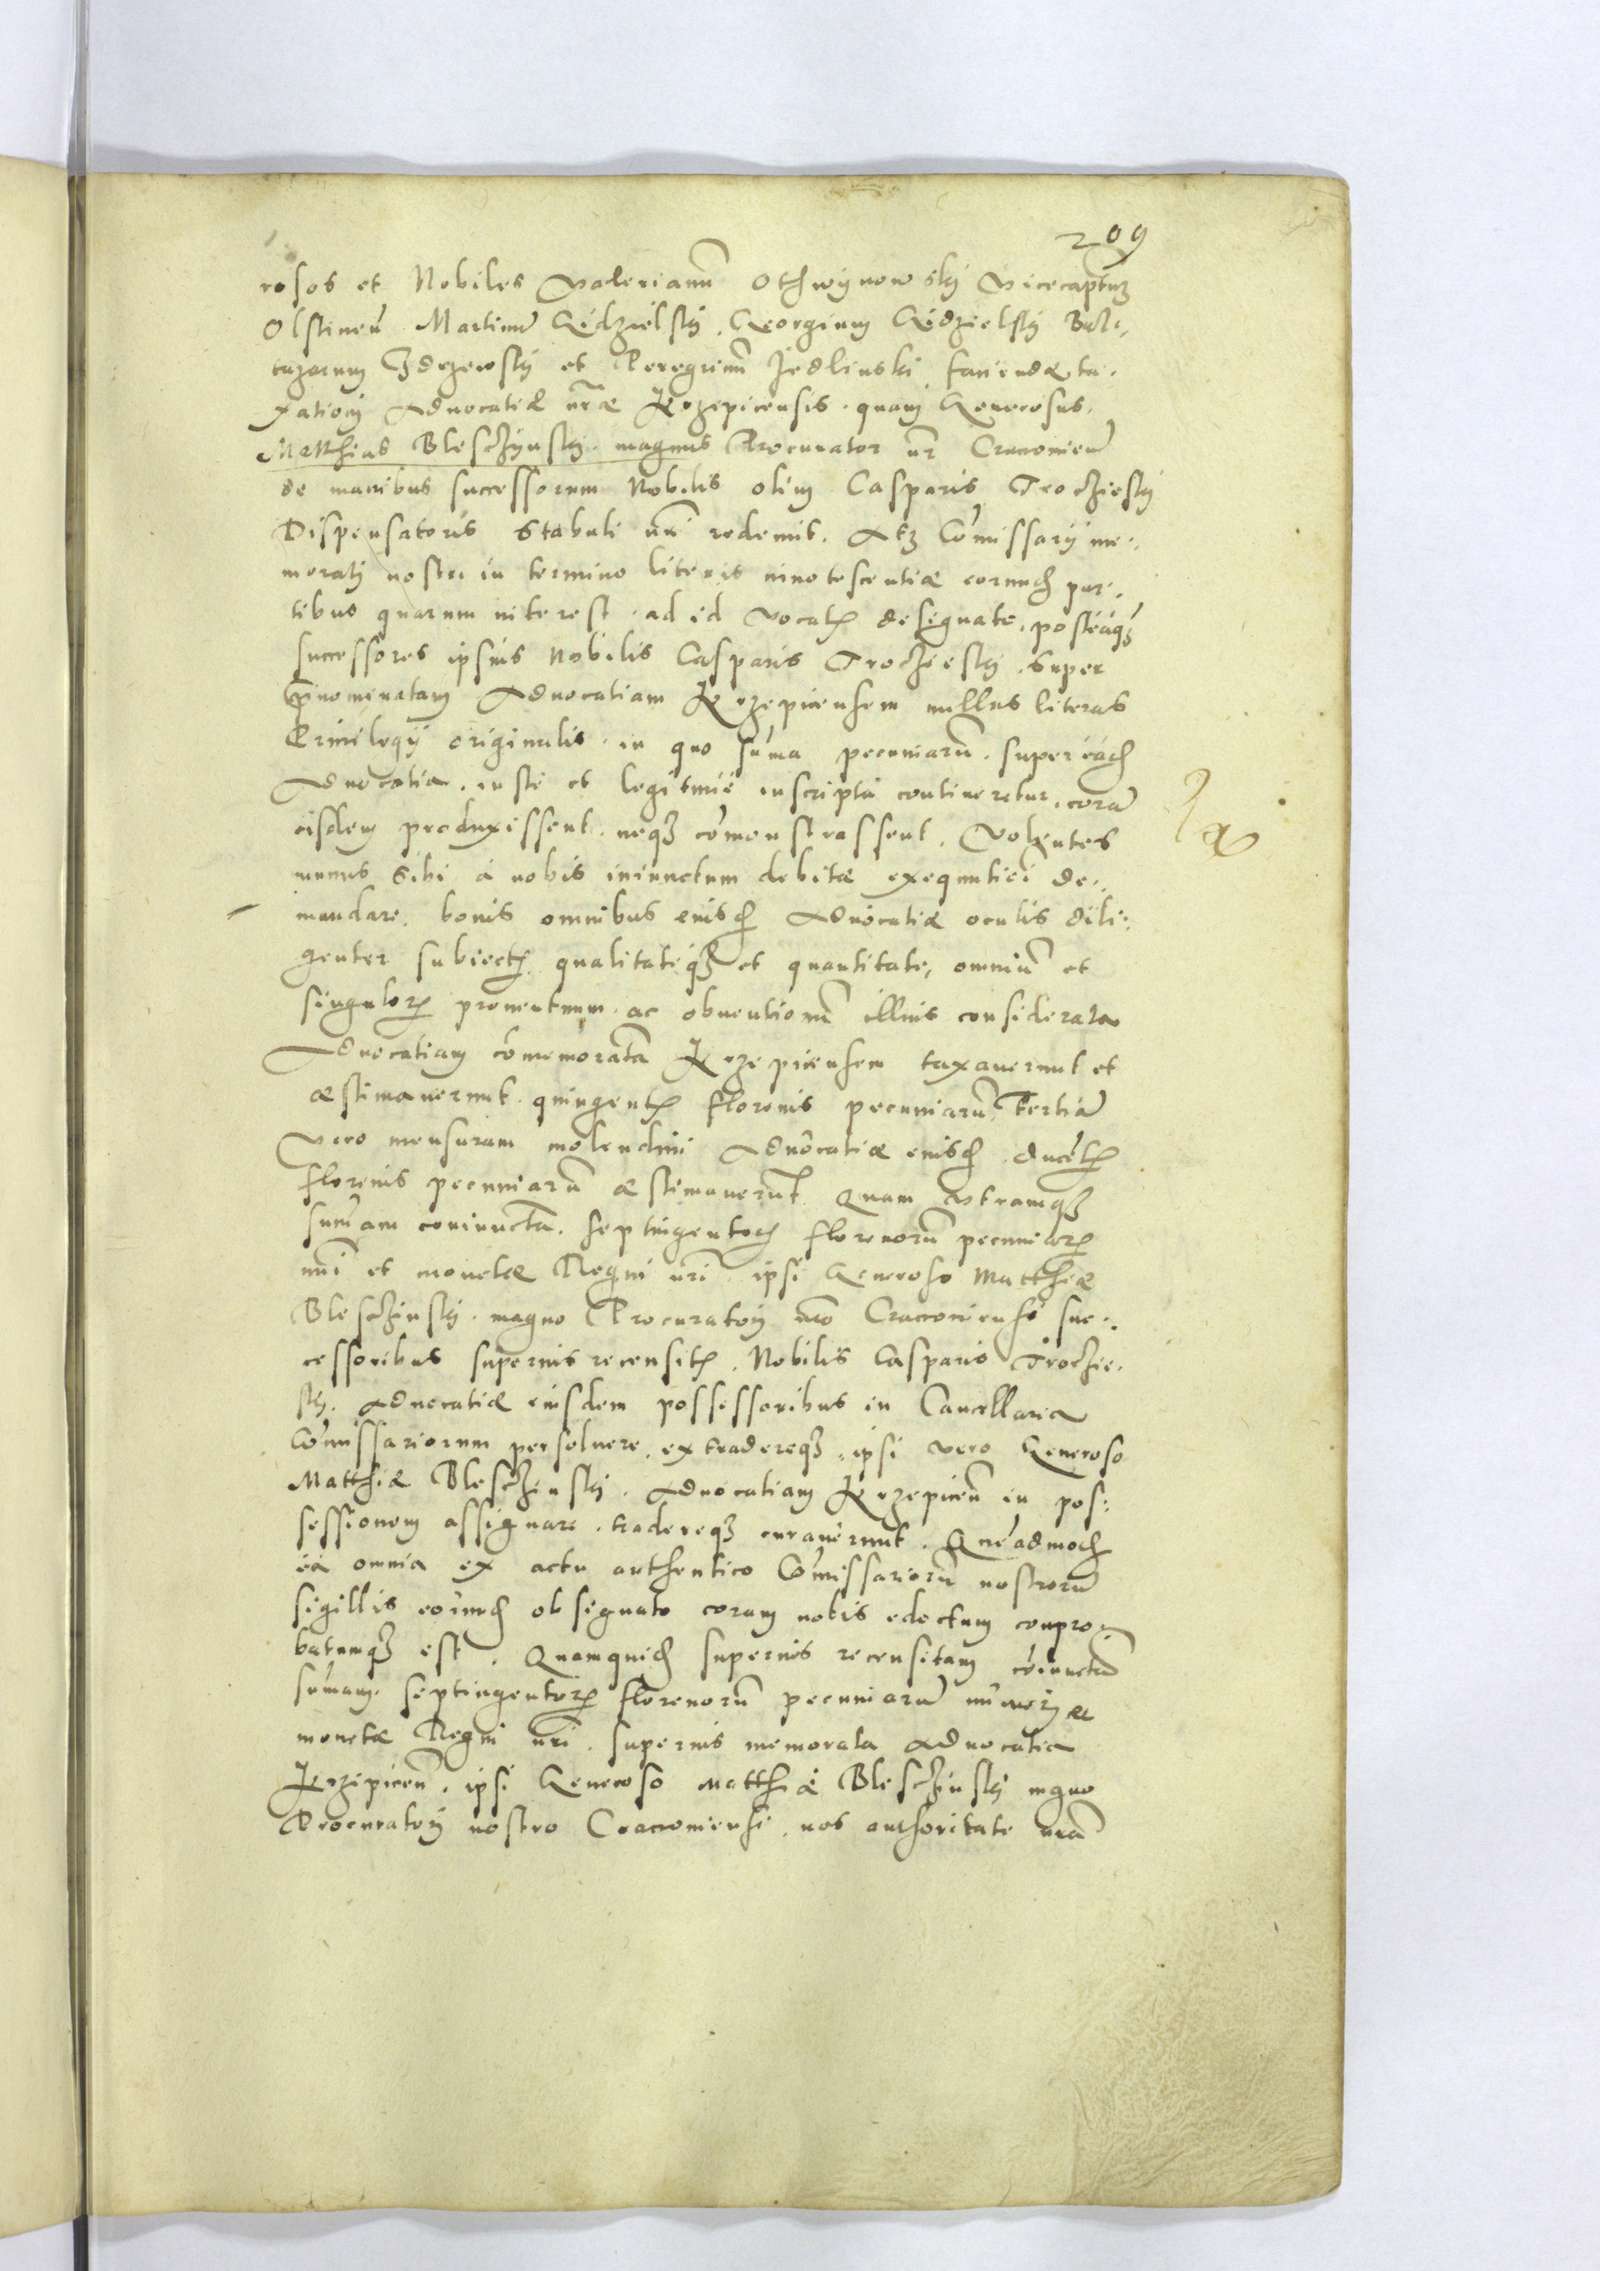 209
rosos et Nobiles Valerianũ Othwÿnowskÿ Vicecaptũ
Olstineñ Martinũ Gidzielskÿ, Georgium Gidzielskÿ Bal-
tazarum Zdzewskÿ et Peregrinũ Jedlinski faciendæ ta-
xationj Advocatiæ nr̃æ Krzepicensis quam Generosus
Matthias Blesczÿnskÿ magnus Procurator nr̃ Cracovień
de manibus successorum Nobilis olim Casparis Troczieskÿ
Dispensatoris stabuli nr̃i redemit. Atq₃ Com̃issarÿ me-
moratj nostri in termino literis innotescentiæ eorundẽ par-
tibus quarum interest ad id vocatis designato, posteaq₃
successores ipsius Nobilis Casparis Troczieskÿ super
p̃nominatam Advocatiam Krzepicensem nullas literas
Privilegÿ originalis in quo sum̃a pecuniarũ super eadẽ
Advocatia iuste et legitime inscripta contineretur, corã
eisdem produxissent neq₃ com̃onstrassent. Volentes
munus sibi a nobis iniunctum debitæ exequutioĩ de-
mandare, bonis omnibus eiusdẽ Advocatiæ oculis dili-
genter subiectis qualitateq₃ et quantitate, omniũ et
singulorũ proventuum ac obventionũ illius considerata
Advocatiam com̃emoratã Krzepicensem taxaverunt et
æstimaverunt quingentis florenis pecuniarũ, Tertiã
vero mensuram molendini Advocatiæ eiusdẽ ducẽtis
florenis pecuniarũ æstimaverũt. Quam utramq₃
sum̃am coniunctã septingentorũ florenorũ pecuniarũ
nũi et monetæ Regni nr̃i ipsi Generoso Matthiæ
Blesczinskÿ magno Procuratorj nr̃o Cracoviensi suc-
cessoribus superius recensitis Nobilis Casparis Troczie-
skÿ Advocatiæ eiusdem possessoribus in Cancellaria
Com̃issariorum persolvere, extradereq₃ ipsi vero Generoso
Matthiæ Blesczinskÿ Advocatiam Krzepiceñ in pos-
sessionem assignare tradereq₃ curaverunt. Quẽadmodũ
ea omnia ex actu authentico Com̃issariorũ nostrorũ
sigillis eorundẽ obsignato coram nobis edoctum compro-
batumq₃ est. Quamquidẽ superius recensitam coiunctã
sum̃am septingentorũ florenorũ pecuniarũ numerj ac
monetæ Regni nr̃i superius memorata Advocatia
Krzepiceñ ipsi Generoso Matthiæ Blesczinskÿ mgno
Procuratorj nostro Cracoviensi nos authoritate nr̃ã